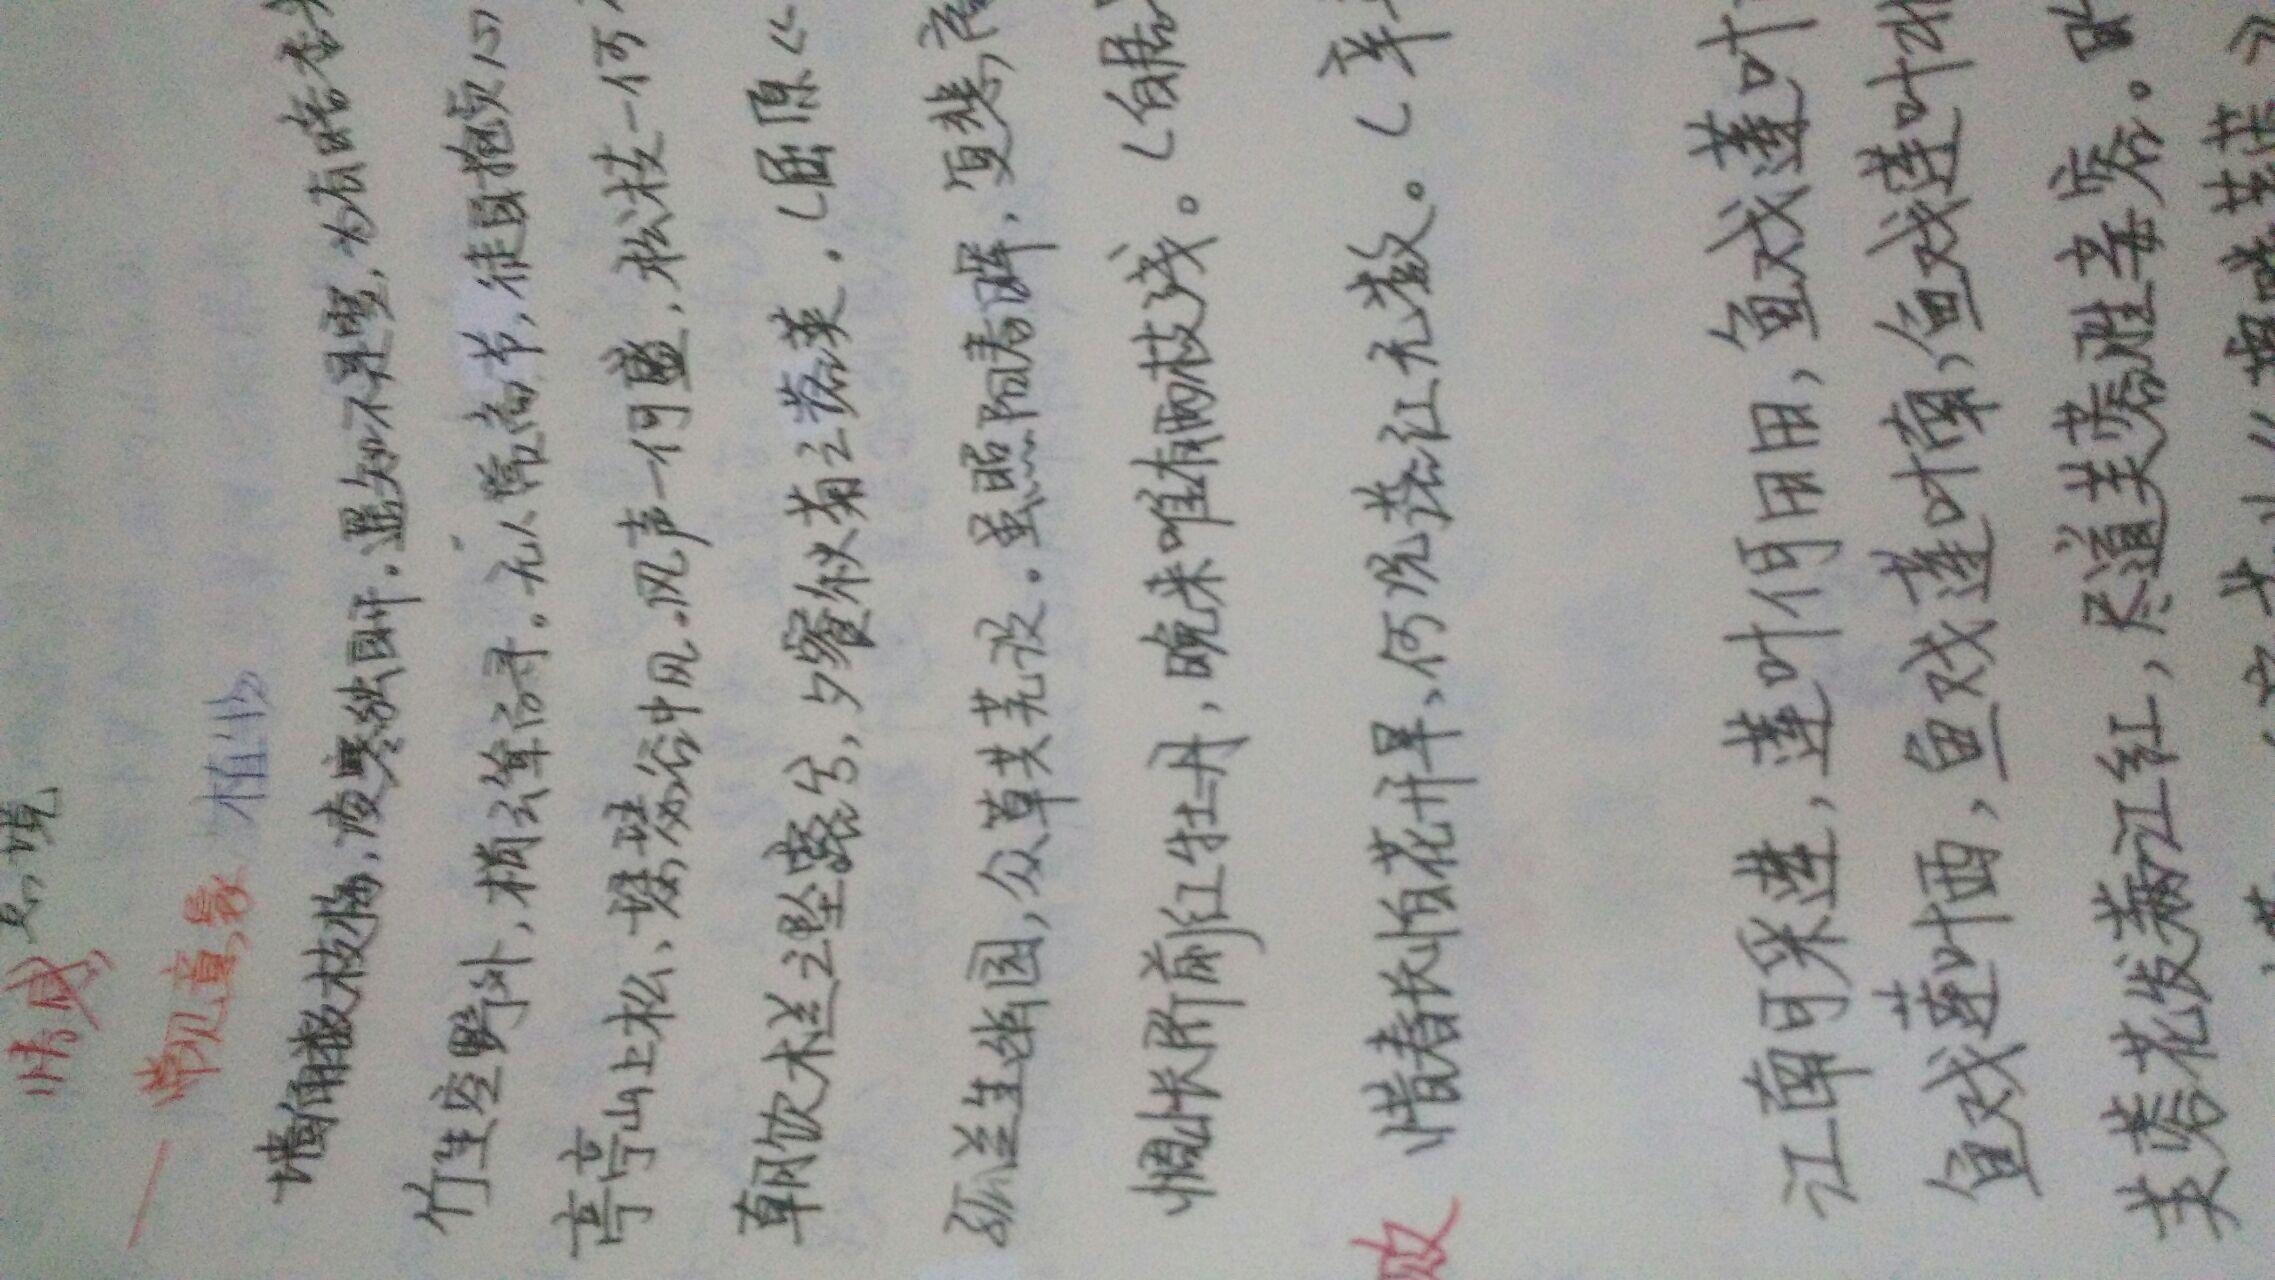 情感 意境
一 常见意象 植物
墙角数枝梅,凌寒独自开。遥知不是雪,为有暗香
竹生空野外,梢云耸百寻。无人赏高节,徒自抱贞心
亭亭山上松,瑟瑟谷中风。风声一何盛,松枝一何
朝饮木兰之坠露兮,夕餐秋菊之落英。(屈原《
孤兰生幽园,众草共芜没。虽照阳春晖,复悲高
惆怅阶前红牡丹,晚来唯有两枝残。(白居
败 惜春长怕花开早,何况落红无数。(辛
江南可采莲,莲叶何田田,鱼戏莲叶
鱼戏莲叶西,鱼戏莲叶南,鱼戏莲叶北
芙蓉花发满江红,尽道芙蓉胜妾容。